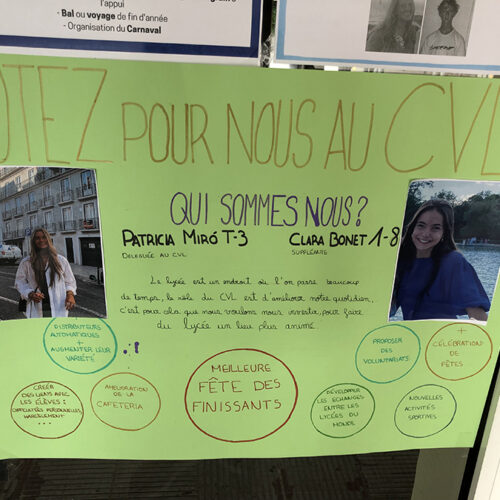 l'appui
- Bal ou voyage de fin d'année
- Organisation du Carnaval
OTEZ POUR NOUS AU CVL
QUI SOMMES NOUS?
PATRICIA MIRÓ T-3
DÉLÉGUÉE AU CVL
CLARA BONET 1-8
SUPPLÉANTE
Le lycée est un endroit où l'on passe beaucoup
de temps, le rôle du CVL est d'améliorer notre quotidien,
c'est pour cela que nous voulons nous investir pour faire
du lycée un lieu plus animé.
DISTRIBUTEURS
AUTOMATIQUES
+
AUGMENTER LEUR
VARIÉTÉ
CRÉER
DES LIENS AVEC LES
ÉLÈVES :
HARCÈLEMENT
...
AMÉLIORATION DE LA
CAFETERIA
MEILLEURE
FÊTE DES
FINISSANTS
DÉVELOPPER
LES ÉCHANGES
ENTRE LES
LYCÉES DU
MONDE
PROPOSER
DES
VOLONTARIATS
+
CÉLÉBRATION
DE
FÊTES
NOUVELLES
ACTIVITÉS
SPORTIVES